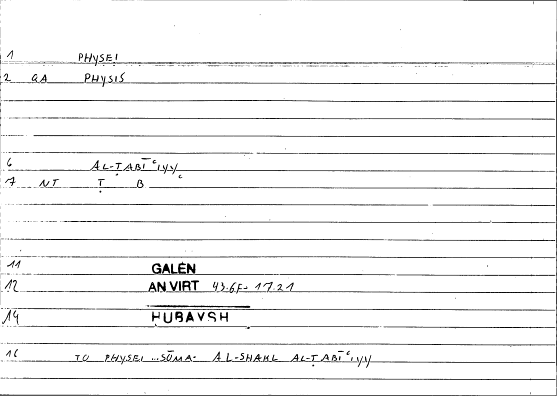 1 PHYSEI
2 GA PHYSIS
6 AL-ṬABĪʿIYY
7 NT Ṭ B ʿ
11 GALEN
12 AN VIRT 43.6F- 17.21
14 HUBAYSH
16 TO PHYSEI ...SŌMA- AL-SHAKL AL-ṬABĪʿIYY